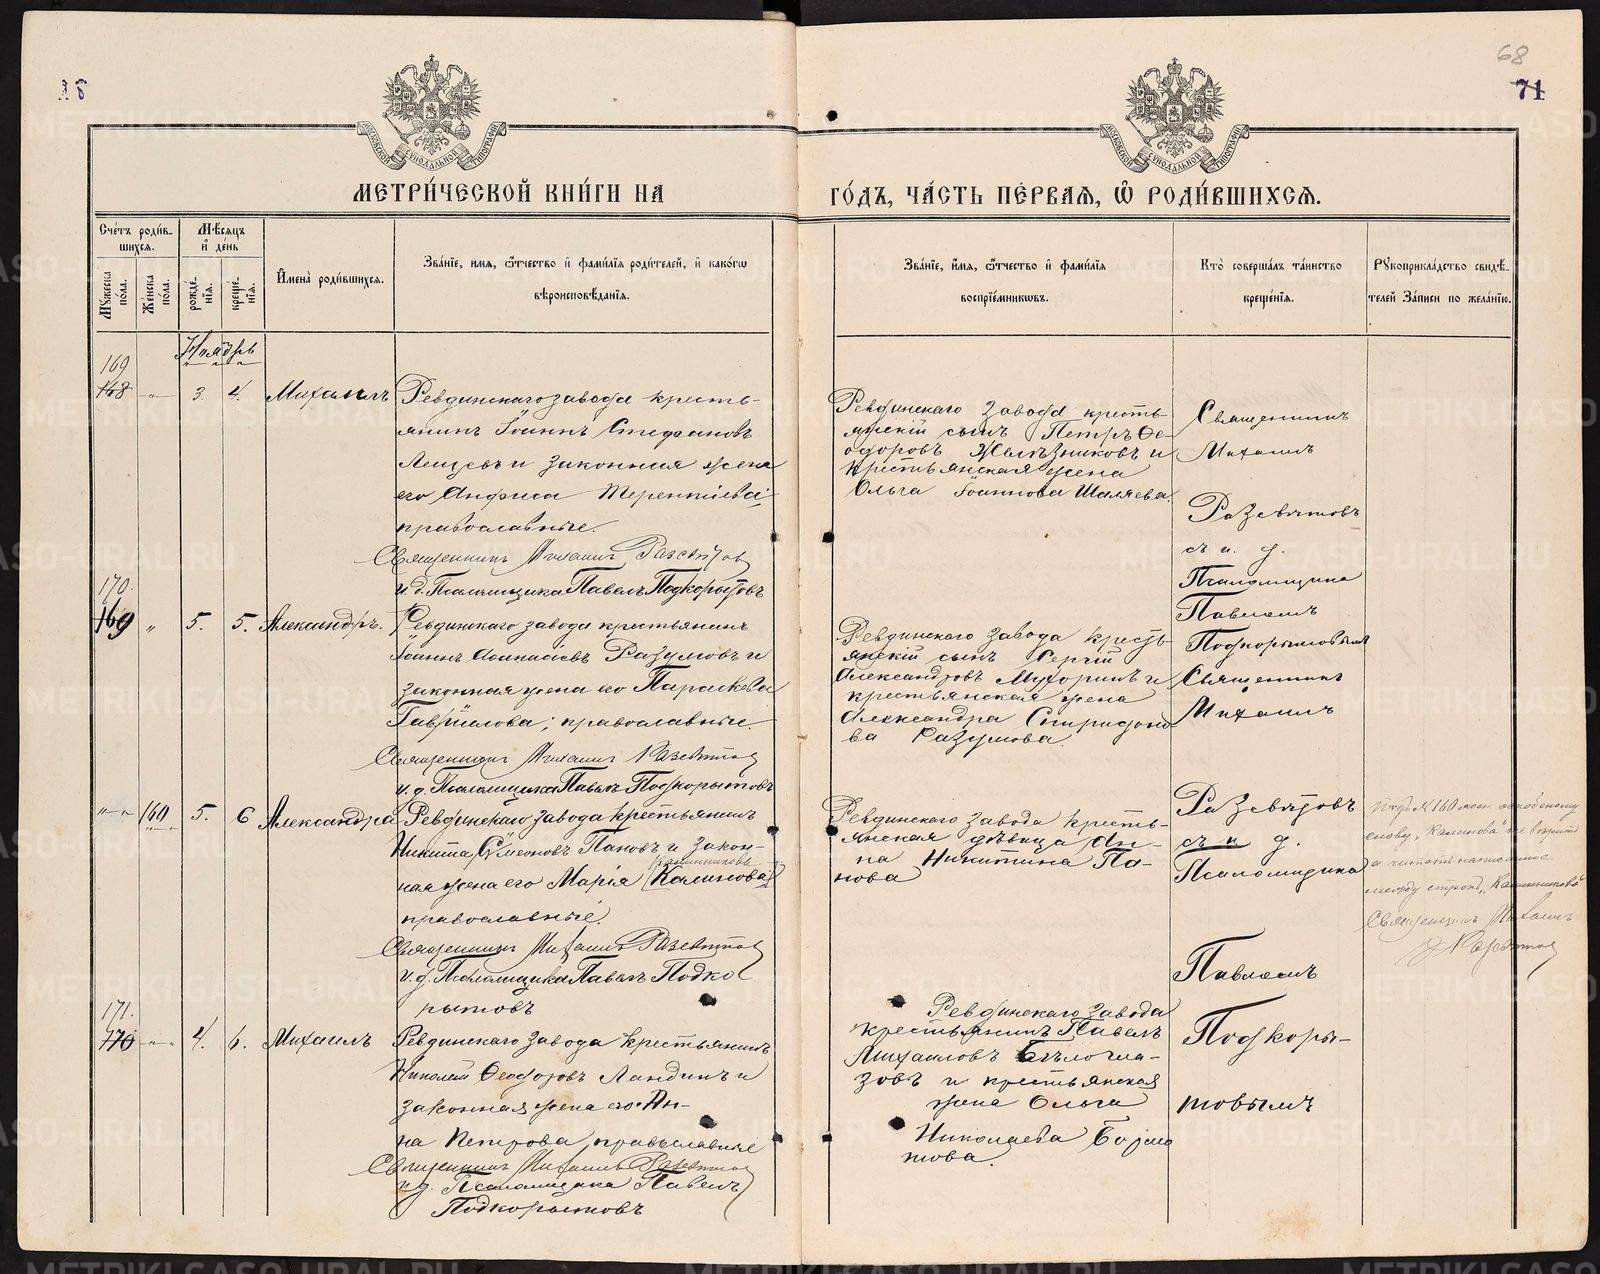 68
71
МЕТРИ́ЧЕСКОЙ КНИ́ГИ НА ГО́ДЪ, ЧА́СТЬ ПЕ́РВАЯ, Ѡ҆ РОДИ́ВШИХСЯ.
Сче́тъ роди́в-
шихся.
Мѣ́сяцъ
и҆ де́нь
Мꙋ́жеска по́ла.
Же́нска по́ла.
рожде́-
нїя.
креще́-
нїя.
И҆мена̀ роди́вшихся.
Зва́нїе, и҆мя, ѻ҆́тчество и҆ фами́лїя роди́телей, и҆ како́гѡ
вѣроисповѣ́данїя.
Зва́нїе, и҆́мя, ѻ҆́тчество и҆ фами́лїя
воспрїе́мниковъ.
Кто̀ соверша́лъ та́инство
креще́нїя.
Рꙋкоприкла́дство свидѣ́-
телей за́писи по жела́нїю.
Ноябрь
169
168 " 3. 4. Михаилъ
Ревдинскаго завода кресть-
янинъ Іоаннъ Стефановъ
Лещевъ и законная жена
его Анфиса Терентіева;
православные.
Священникъ Михаилъ Разсвѣтовъ
и. д. Псаломщика Павелъ Подкорытовъ
Ревдинскаго завода кресть-
янскій сынъ Петръ Ѳе-
одоровъ Желѣзниковъ и
крестьянская жена
Ольга Іоаннова Шаляева.
Священникъ
Михаилъ
Разсвѣтовъ
съ и. д.
Псаломщика
Павломъ
Подкорытовымъ
170.
169 " 5. 5. Александръ.
Ревдинскаго завода крестьянинъ
Іоаннъ Аѳанасіевъ Разумовъ и
законная жена его Параскева
Гавріилова; православные.
Священникъ Михаилъ Разсвѣтовъ
и. д. Псаломщика Павелъ Подкорытовъ
Ревдинскаго завода кресть-
янскій сынъ Сергій
Александровъ Мухоринъ и
крестьянская жена
Александра Спиридоно-
ва Разумова.
Священникъ
Михаилъ
Разсвѣтовъ
съ и д.
Псаломщика
Павломъ
Подкоры-
товымъ
" 160 5. 6 Александра
Ревдинскаго завода крестьянинъ
Никита Сѵмеоновъ Пановъ и закон-
Калинникова
ная жена его Марія (Калинова)
православные.
Священникъ Михаилъ Разсвѣтовъ
и. д. Псаломщика Павелъ Подко
рытовъ
Ревдинскаго завода кресть-
янская дѣвица Ан-
на Никитина Па-
нова
Подъ № 160 жен.
слову "Калинова" не вѣрить
а читать написанное
между строкъ "Калинникова"
Священникъ Михаилъ
Разсвѣтовъ
171.
170 " 4. 6. Михаилъ
Ревдинскаго завода крестьянинъ
Николай Ѳеодоровъ Ландинъ и
законная жена его Ан-
на Петрова, православные
Священникъ Михаилъ Разсвѣтовъ
и д. Псаломщика Павелъ
Подкорытовъ
Ревдинскаго завода
крестьянинъ Павелъ
Михаиловъ Бѣлогла-
зовъ и крестьянская
жена Ольга
Николаева Борма
това.